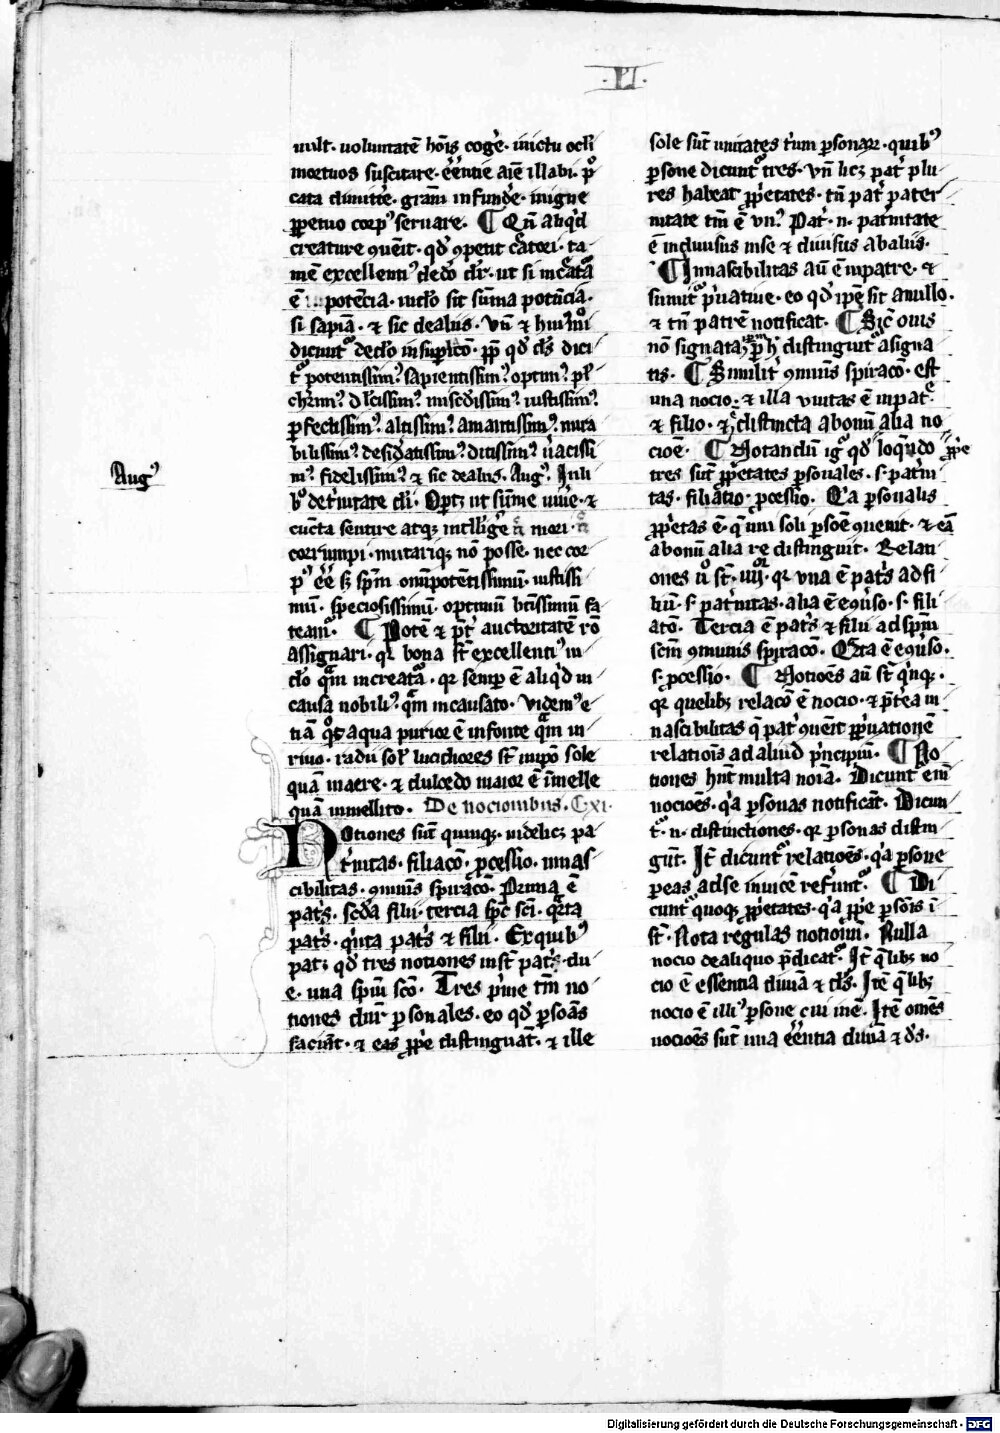 .PI.
uult. voluntatē hoīs cogē᷒. in ictu oculi
mortuos suscitare. eēntie aīe illabi. p̄c
cata dimittē᷒. gram̄ infundē᷒. in igne
ꝑpetuo corp᷒ seruare. ¶ Qn̄ aliqͥd
creature ꝯuēit. qd̓ ꝯpetit cātori. ta
mē excellenti᷒ de deo dr̄. ut si in cāta
ē potēcia. in deo sit sūma potēcia.
si sapīa. ⁊ sic de alijs. vn̄ ⁊ hui᷒modi
dicunt᷑ de deo in suꝑlatō. ꝓp̄ qd̓ ds̄ dici
t᷑ potentissim᷒ sapientissim᷒ optim᷒ pul
cherrim᷒ dulcissim᷒ misc̄dissim᷒ iustissim᷒
ꝑfectissim᷒ altissim᷒ amantissim᷒ mira
bilissim᷒ desid̓atissim᷒ ditissim᷒ ueracissi
m᷒ fidelissim᷒ ⁊ sic de alijs. Aug᷒. In li
Aug᷒
bͦ de tͥnitate di. Oꝑtꝫ ut sūme uiūe ⁊
cūcta sentire atqꝫ intellig̓e mori
corrumpi. mutariqꝫ nō posse. nec cor
p᷒ eē sꝫ spm̄ omīpotētissimū. iustissi
mū. speciosissimū. optimū btīssimū fa
team᷑. ¶ Potē ⁊ pt᷑ auctoritatē rō
assignari. qꝛ bona st̄ excellenti᷒ in
deo qͣm in creatͣa. qꝛ semꝑ ē aliqͥd in
causa nobili᷒ qͣm in causato. Videm᷒ e
tiā qͦd aqua purior ē in fonte qͣm in
riuo. radij sol̓ lucidiores st̄ in ipō sole
quā in aere. ⁊ dulcedo maior ē in melle
quā in mellito. De nocionibus. Cxi.
Notiones sūt quinqꝫ. uidelicꝫ pa
t᷑nitas. filiacō. ꝓcessio. innas
cibilitas. ꝯmunis spiracō. Prima ē
patͥs. scd̓a filij. tercia spc̄ sci. qͣrta
patͥs. qͥnta patͥs ⁊ filij. Ex quib᷒
patꝫ qd̓ tres notiones in st̄ patͥs. du
e. una spiui sc̄o. Tres pͥme tm̄ no
tiones dūr ꝑsonales. eo qd̓ ꝑsoās
faciūt. ⁊ eas ꝓpͥe distinguāt. ⁊ ille
sole sūt unitates tͥum ꝑsonaꝝ. quib᷒
ꝑsone dicunt᷑ tres. vn̄ licꝫ pat᷑ plu
res habeat ꝓpͥetates. tn̄ pat᷑ pater
nitate tm̄ ē vn᷒. Pat᷑. n. patͥnitate
ē indiuisus in se ⁊ diuisus ab alijs.
¶ Innascibilitas aū ē in patre. ⁊
sumit᷑ pͥuatiue. eo qd̓ ip̄e sit a nullo.
⁊ tn̄ patrē notificat. ¶ Sic̄ ouis
nō signata ꝑ h᷒ distinguit᷑ a signa
tis. ¶ Similit᷑ ꝯmuis spiracō. est
una nocio. ⁊ illa vnitas ē in pat᷑e
⁊ filio. ⁊ distincta ab oni alia no
cioē. ¶ Notandū ig᷑ qd̓ loqͤndo ꝓpͥe
tres sūt ꝓpͥetates ꝑsonales. s. patͥni
tas. filiatio. ꝓcessio. Qͥa ꝑsonalis
ꝓpͥetas ē. q̄ uni soli ꝑsoē ꝯuenit. ⁊ eā
ab oni alia re distinguit. Relati
ones uͦ st̄. iiijoꝛ. qꝛ vna ē patͥs ad fi
liū. s. patͥnitas. alia ē eqͥuso. s. fili
atō. Tercia ē patͥs ⁊ filij ad spm̄
scm̄ ꝯmunis spiracō. Qͣrta ē eqͥuso.
s. ꝓcessio. ¶ Notioēs aū st̄ qͥnqꝫ.
qꝛ quelibꝫ relacō ē nocio. ⁊ pt̄ea in
nascibilitas q̄ pat᷑ ꝯuēit ꝑ pͥuationē
relatiois ad aliud pͥncipiū. ¶ No
tiones hn̄t multa noīa. Dicunt̄ em̄
nocioēs. qͥa ꝑsonas notificāt. Dicun
t᷑. n. distinctiones. qꝛ ꝑsonas distin
gūt. It̄ dicunt᷑ relatioēs. qͥa ꝑsone
ꝑ eas ad se inuicē refunt᷑. ¶ Di
cunt᷑ quoqꝫ ꝓpͥetates. qͥa ꝓpͥe ꝑsois i
st̄. Nota regulas notionū. Nulla
nocio de aliquo pͬdicat᷑. It̄ q̄libꝫ no
cio ē essentia diuīa ⁊ ds̄. Itē q̄libꝫ
nocio ē illi᷒ ꝑsone cui inē. Itē om̄s
nocioēs sūt una eēntia diuīa ⁊ ds̄.
Digitalisierung gefördert durch die Deutsche Forschungsgemeinschaft - DFG